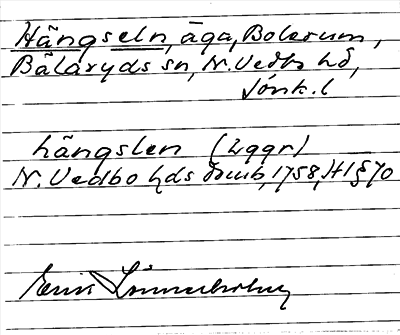 Hängseln, äga, Bolerum,
Bälaryds sn, N. Vedbo hd,
Jönk. l
hängslen (2 ggr)
N. Vedbo hds domb, 1758, H I § 70